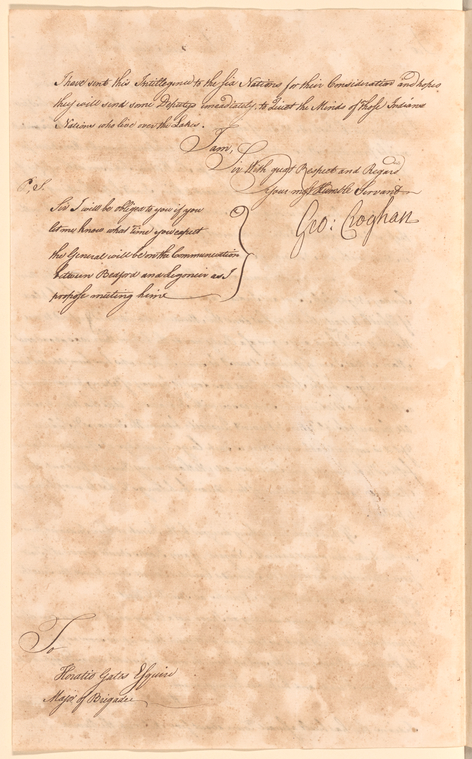 I have sent this Intellegence to the six Nations for their Consideration and hopes
they will send some Deputys imediately to Quiet the Minds of those Indians
Nations who live over the Lakes.
I am,
Sir With great Respect and Regard
Your most Humble Servant
Geo: Croghan
P, S.
Sir I will be obliged to you if you
let me know what time you expect
the General will be on the Communication
between Bedford and Ligonier as I
propose meeting himn
To
Horatio Gates Esquire
Major of Brigade